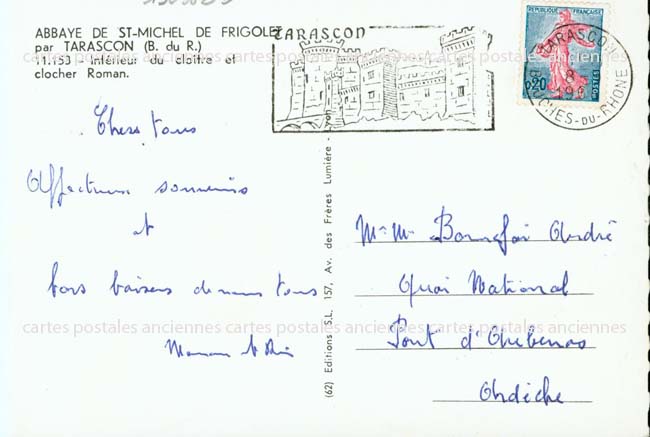 ABBAYE DE ST-MICHEL DE FRIGOLET
par TARASCON (B. du R.)
11.153 - Intérieur du cloître et
clocher Roman.
TARASCON
REPUBLIQUE FRANÇAISE
0,20
POSTES
TARASCON
8
BOUCHES-DU-RHONE
Chers tous
Affectueux souvenirs
et
bons baisers de nous tous
Maman
(62) Editions S.L. 157, Av. des Frères Lumière - Lyon
Mr Mme Bonnefoi André
Quai National
Pont d'Aubenas
Ardèche
cartes postales anciennes cartes postales anciennes cartes postales anciennes
cartes postales anciennes cartes postales anciennes cartes postales anciennes